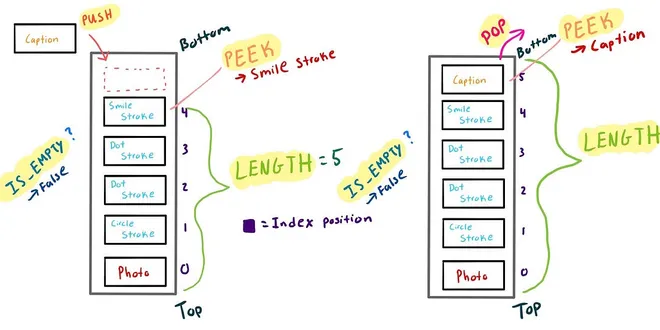 Caption
PUSH
Bottom
PEEK
→ Smile Stroke
Smile
Stroke
4
Dot
Stroke
3
Dot
Stroke
2
Circle
Stroke
1
Photo
0
Top
IS_EMPTY?
→ False
LENGTH = 5
= Index position
POP
Bottom
PEEK
→ Caption
Caption
5
Smile
Stroke
4
Dot
Stroke
3
Dot
Stroke
2
Circle
Stroke
1
Photo
0
Top
IS_EMPTY?
→ False
LENGTH